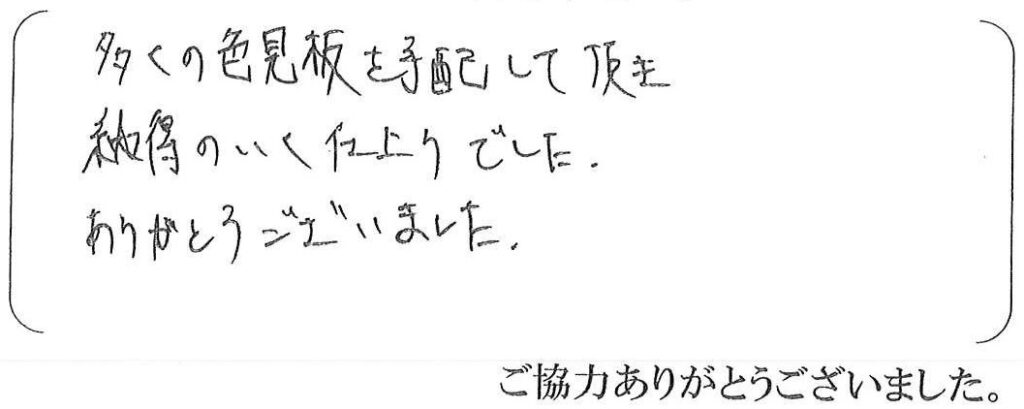 多くの色見板を手配して頂き
納得のいく仕上りでした.
ありがとうございました.
ご協力ありがとうございました。